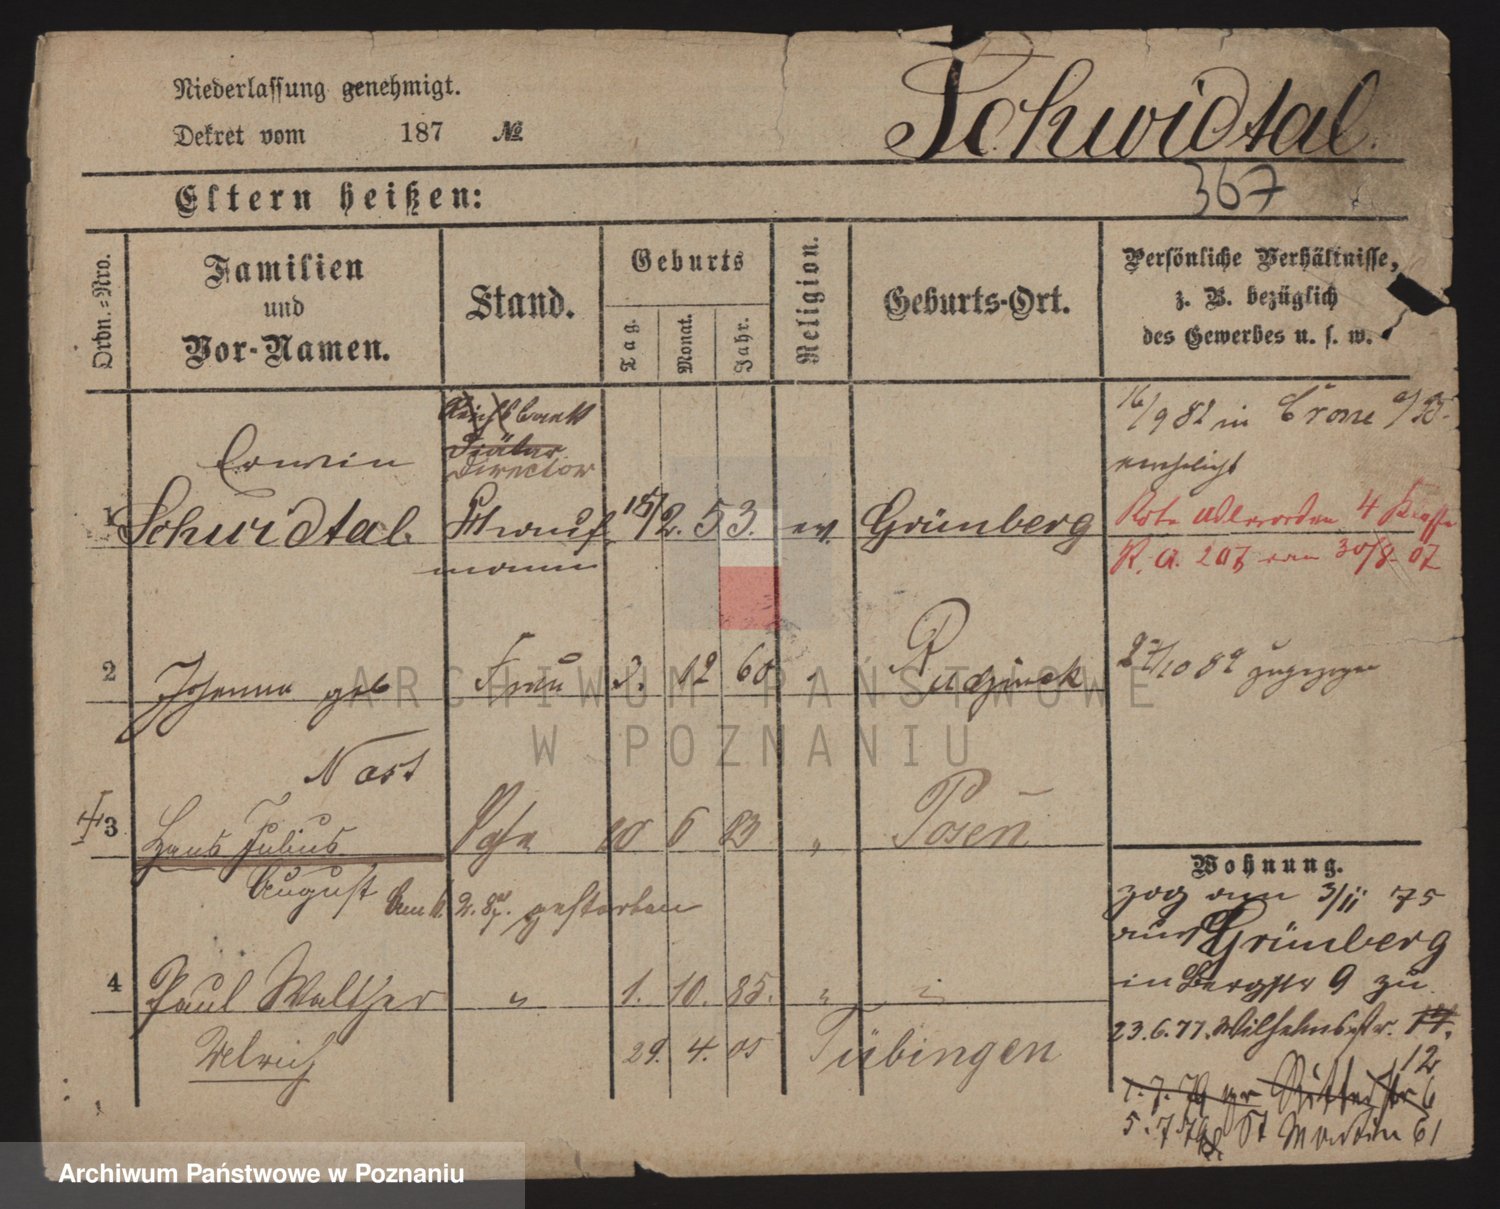 Niederlassung genehmigt.
Dekret vom 187 №
Schwidtal.
367
Eltern heißen:
Ordn.-Nro.
Familien und Vor-Namen.
Stand.
Geburts
Tag.
Monat.
Jahr.
Religion.
Geburts-Ort.
Persönliche Verhältnisse,
z. B. bezüglich
des Gewerbes u. s. w.
Reichsbank
Director
16/9 82 in Crone a/Br
verehelicht
Erwin
1 Schwidtal. Kaufmann 15/2. 53. ev. Grünberg
Rote Adlerorden 4 Klasse
R. A. 207 von 30/8. 07
2 Johanna geb Frau 3. 12 60 " Rudzinek
27/10 82 zugezogen
Nast
3 Hans Julius Sohn 20 6 83 " Posen
August
Am 6. 2. 87. gestorben
4 Paul Walther " 1. 10. 85. " "
Ulrich 29. 4. 05 Tübingen
Wohnung.
zog am 3/11 75
aus Grünberg
in Bergstr 9 zu
23.6.77. Wilhelmsstr. 17.
12
1.7.79 Ritterstr 6
5.7.79 St Martin 61
ARCHIWUM PAŃSTWOWE
W POZNANIU
Archiwum Państwowe w Poznaniu